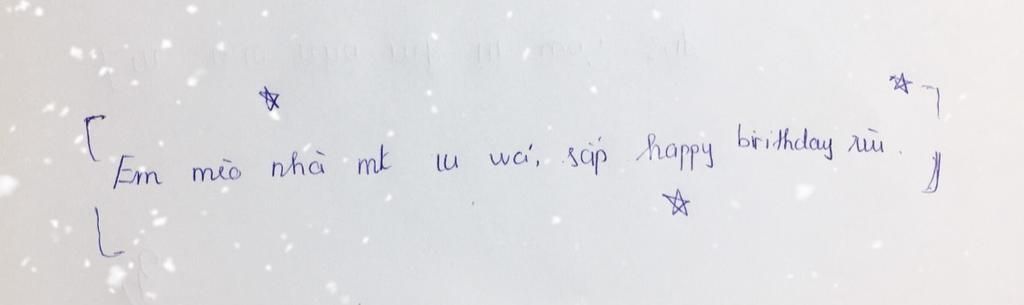 Em mèo nhà mk iu wá, sắp happy birithday rùi.